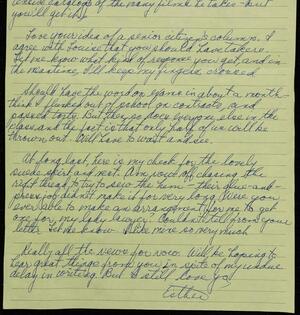 catalogs of the many films he takes - but
you'll get it.
Love your idea of a senior citizen's column. I
agree with Louise that you should have taken
Let me know what kind of response you get, and in
the meantime, I'll keep my fingers crossed
Should have the word on exams in about a month.
think I flunked out of school on contracts, and
passed torts. But they so does everyone else in the
class and the fact is that only half of us will be
thrown out. Will have to wait and see.
At long last, here is my check for the lovely
suede skirt and vest. Am now chasing the
right thread to try to sew the hem - their glue-and-
press job did not make it for very long. Were you
ever able to make an arrangement for me to get
one for my lady lawyer? Couldn't tell from your
letter. Let me know. I like mine so very much
Really all the news for now. Will be hoping to
hear great things from you in spite of my undue
delay in writing. But I still love ya.
Esther